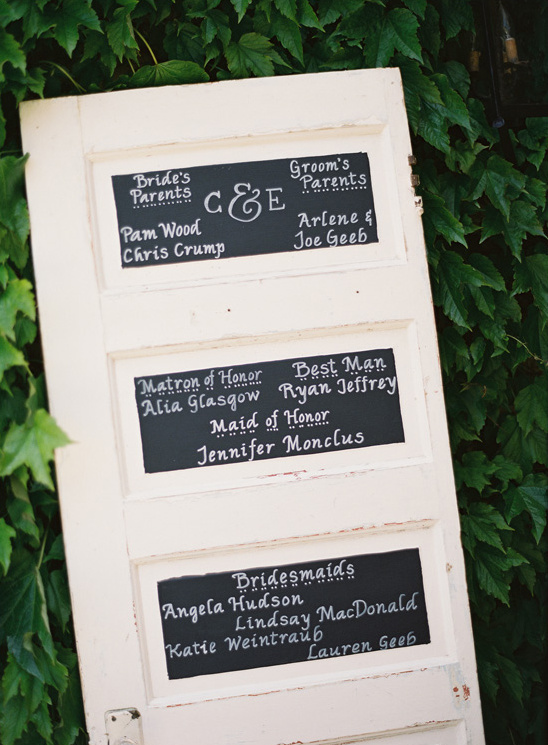 Bride's Parents
C & E
Groom's Parents
Pam Wood
Chris Crump
Arlene &
Joe Geeb
Matron of Honor
Alia Glasgow
Best Man
Ryan Jeffrey
Maid of Honor
Jennifer Monclus
Bridesmaids
Angela Hudson
Lindsay MacDonald
Katie Weintraub
Lauren Geeb